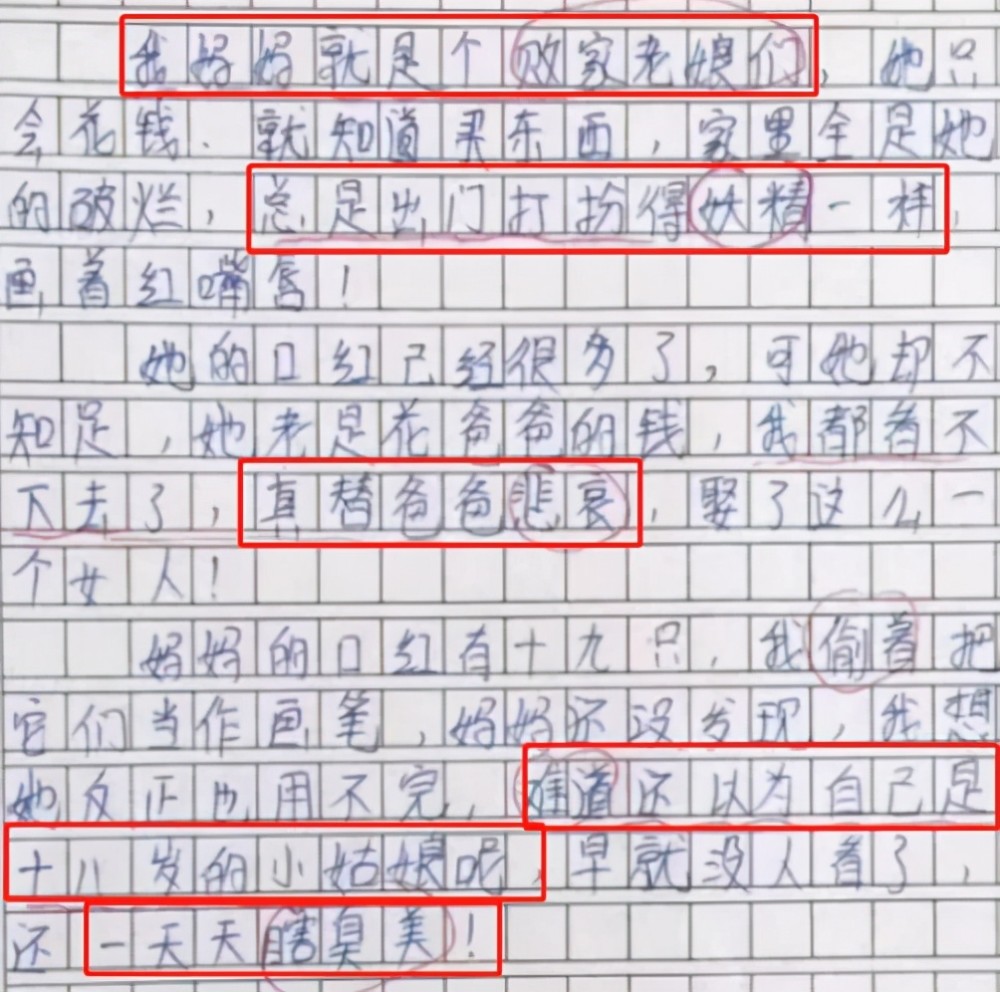 我妈妈就是个败家老娘们，她只
会花钱.就知道买东西，家里全是她
的破烂，总是出门打扮得妖精一样，
画着红嘴唇！
她的口红已经很多了，可她却不
知足，她老是花爸爸的钱，我都看不
下去了，真替爸爸悲哀，娶了这么一
个女人！
妈妈的口红有十九只，我偷着把
它们当作画笔，妈妈还没发现，我想
她反正也用不完，难道还以为自己是
十八岁的小姑娘呢，早就没人看了，
还一天天瞎臭美！